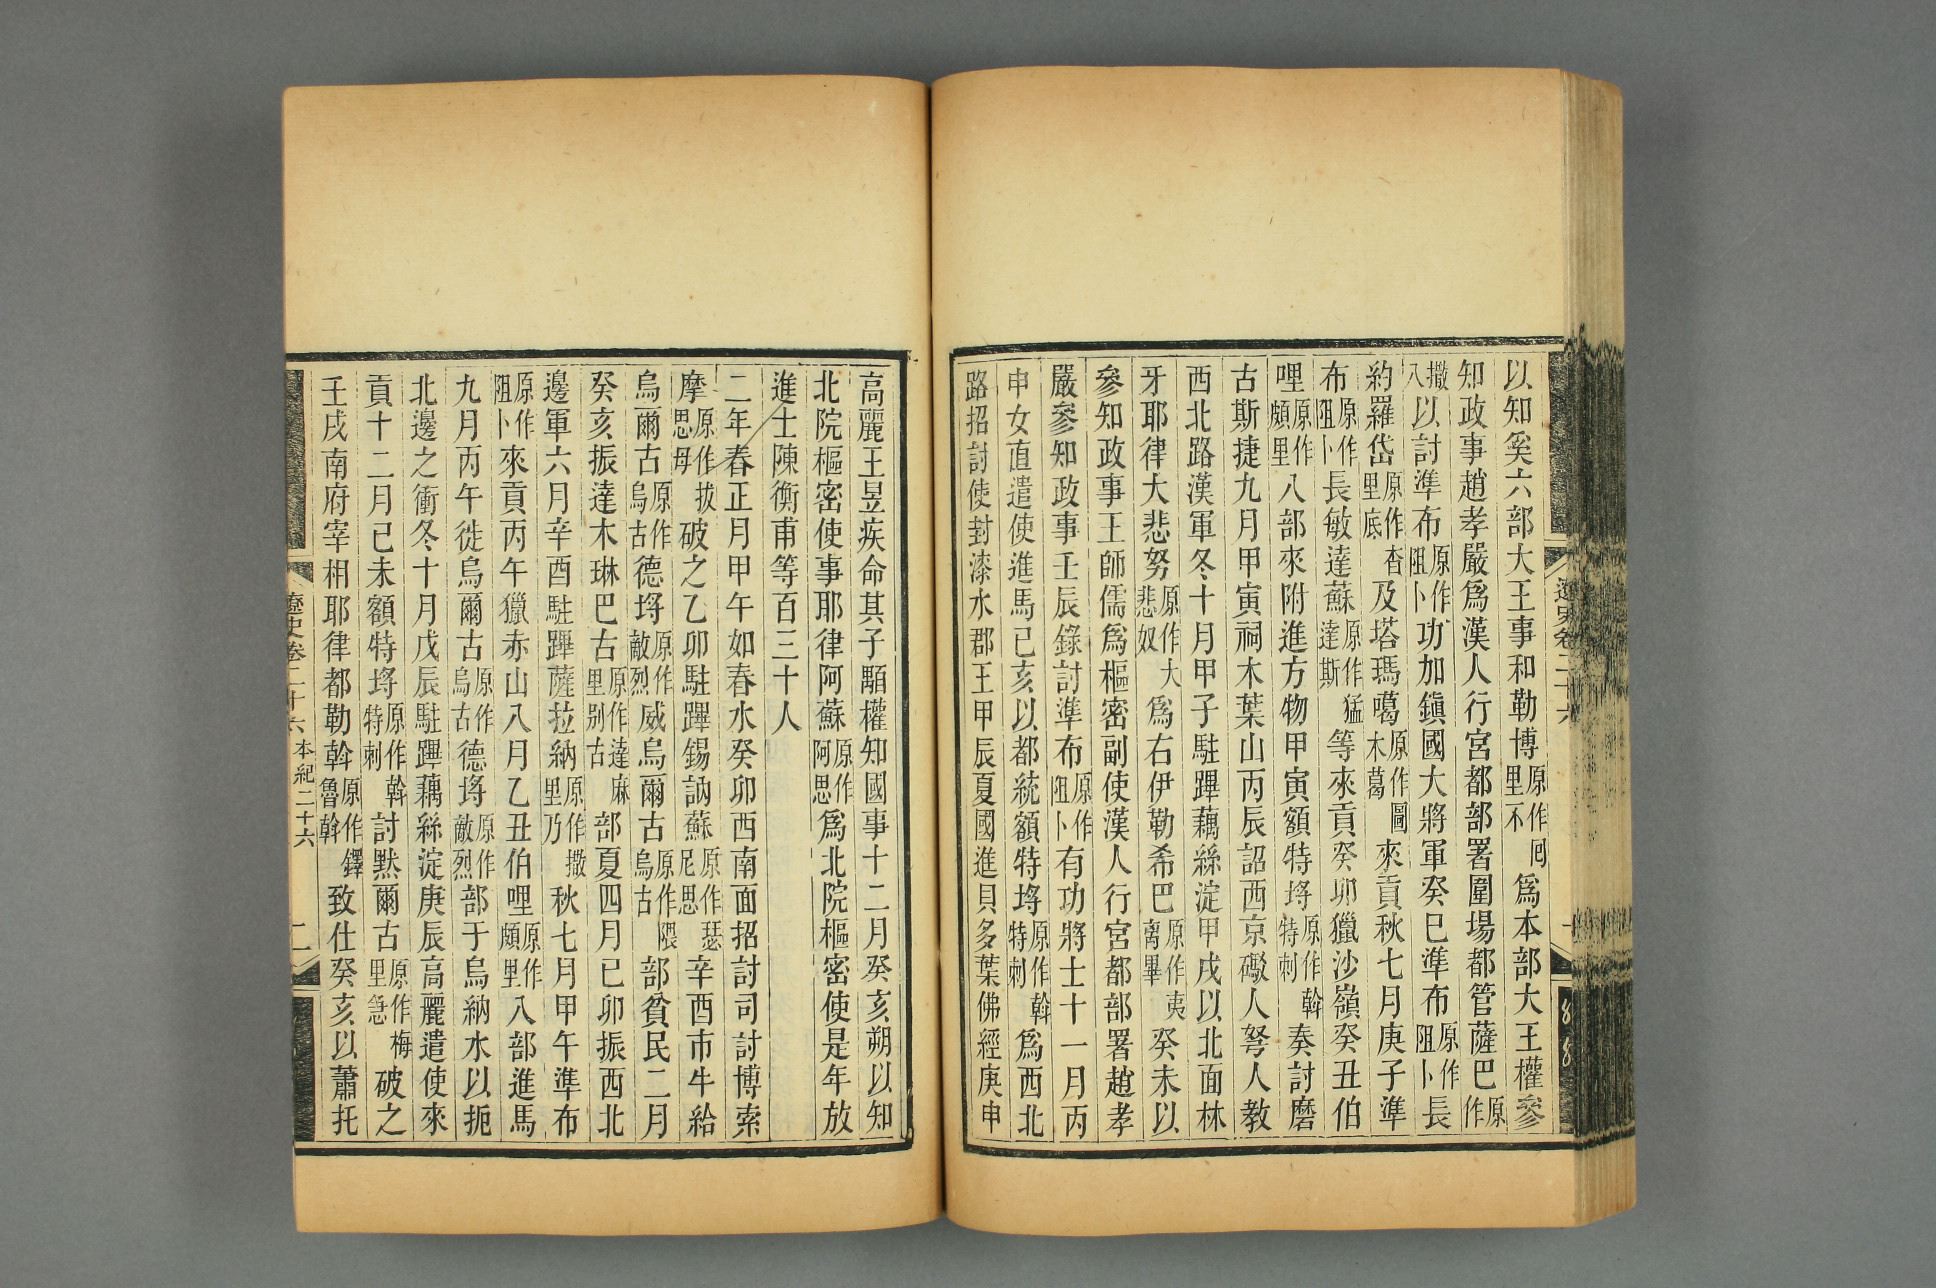 以知奚六部大王事和勒博原作囘里不爲本部大王權參
知政事趙孝嚴爲漢人行宮都部署圍場都管薩巴原作
撒八以討準布原作阻卜功加鎮國大將軍癸巳準布原作阻卜長
約羅岱原作杏里底及塔瑪噶原作圖木葛來貢秋七月庚子準
布原作阻卜長敏達蘇原作猛達斯等來貢癸卯獵沙嶺癸丑伯
哩原作頗里八部來附進方物甲寅額特埒原作斡特剌奏討磨
古斯捷九月甲寅祠木葉山丙辰詔西京礮人弩人教
西北路漢軍冬十月甲子駐蹕藕絲淀甲戌以北面林
牙耶律大悲努原作大悲奴爲右伊勒希巴原作夷离畢癸未以
參知政事王師儒爲樞密副使漢人行宮都部署趙孝
嚴參知政事壬辰錄討準布原作阻卜有功將士十一月丙
申女直遣使進馬己亥以都統額特埒原作斡特剌爲西北
路招討使封漆水郡王甲辰夏國進貝多葉佛經庚申
高麗王昱疾命其子顒權知國事十二月癸亥朔以知
北院樞密使事耶律阿蘇原作阿思爲北院樞密使是年放
進士陳衡甫等百三十人
二年春正月甲午如春水癸卯西南面招討司討博索
摩原作拔思毋破之乙卯駐蹕錫訥蘇原作瑟尼思辛酉市牛給
烏爾古原作烏古德埒原作敵烈威烏爾古原作隈烏古部貧民二月
癸亥振達木琳巴古原作達麻里别古部夏四月己卯振西北
邊軍六月辛酉駐蹕薩拉納原作撒里乃秋七月甲午準布
原作阻卜來貢丙午獵赤山八月乙丑伯哩原作頗里八部進馬
九月丙午徙烏爾古原作烏古德埒原作敵烈部于烏納水以扼
北邊之衝冬十月戊辰駐蹕藕絲淀庚辰高麗遣使來
貢十二月己未額特埒原作斡特剌討默爾古原作梅里急破之
壬戌南府宰相耶律都勒斡原作鐸魯斡致仕癸亥以蕭托
遼史卷二十六 本紀二十六 二